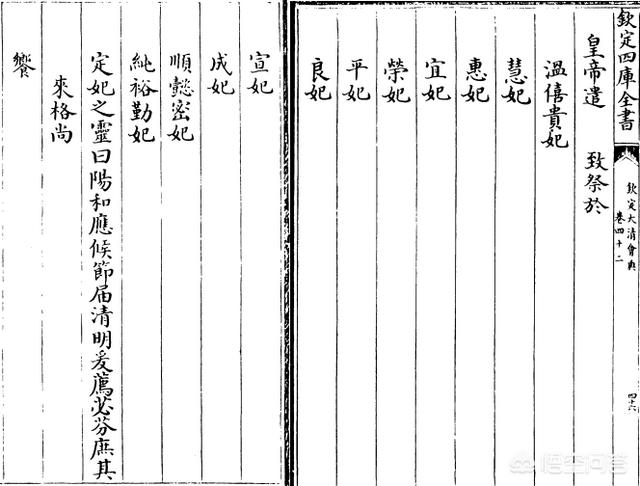 欽定四庫全書
欽定大清會典
卷四十二
四十六
皇帝遣 致祭於
溫僖貴妃
慧妃
惠妃
宜妃
榮妃
平妃
良妃
宣妃
成妃
順懿密妃
純裕勤妃
定妃之靈曰陽和應候節屆清明爰薦苾芬庶其
來格尚
饗
悟空问答